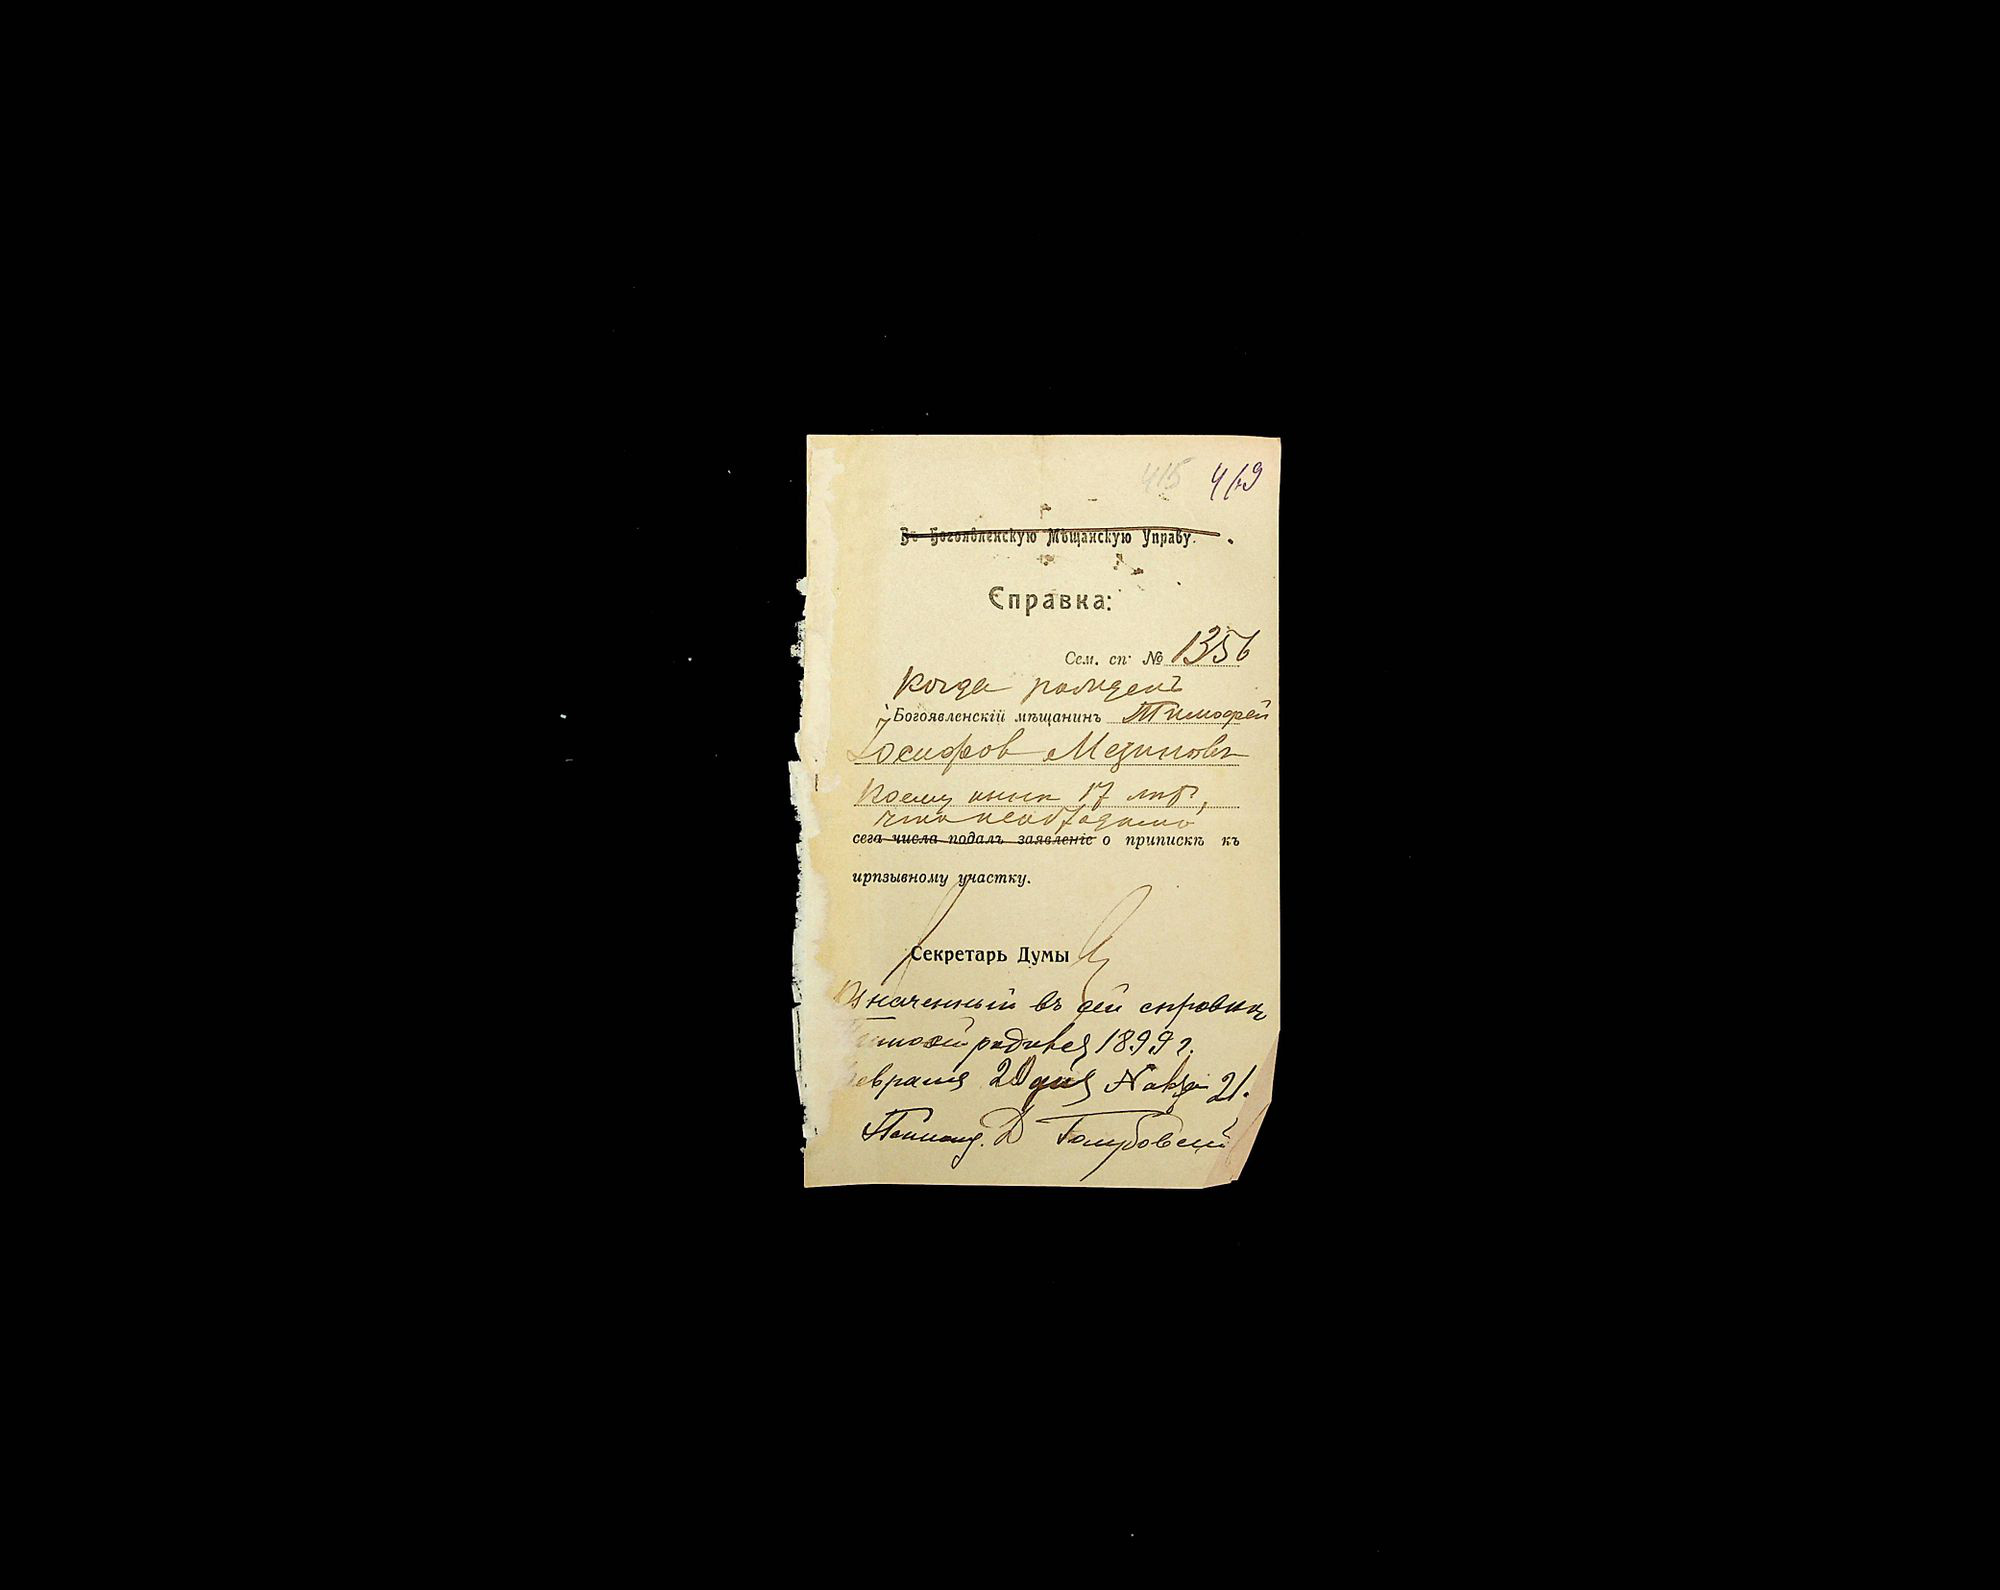 415 419
Въ Богоявленскую Мѣщанскую Управу.
Справка:
Сем. сп. № 1356
когда рожденъ
Богоявленскій мѣщанинъ Тимофей
Іосифов
коему нынѣ 17 лѣтъ,
что необходимо
сега числа подалъ заявленіе о припискѣ къ
ирпзывному участку.
Секретарь Думы
Означенный въ сей справкѣ
Тимофей родился 1899 г.
Февраля 20 дня 21.
Д Голубовскій